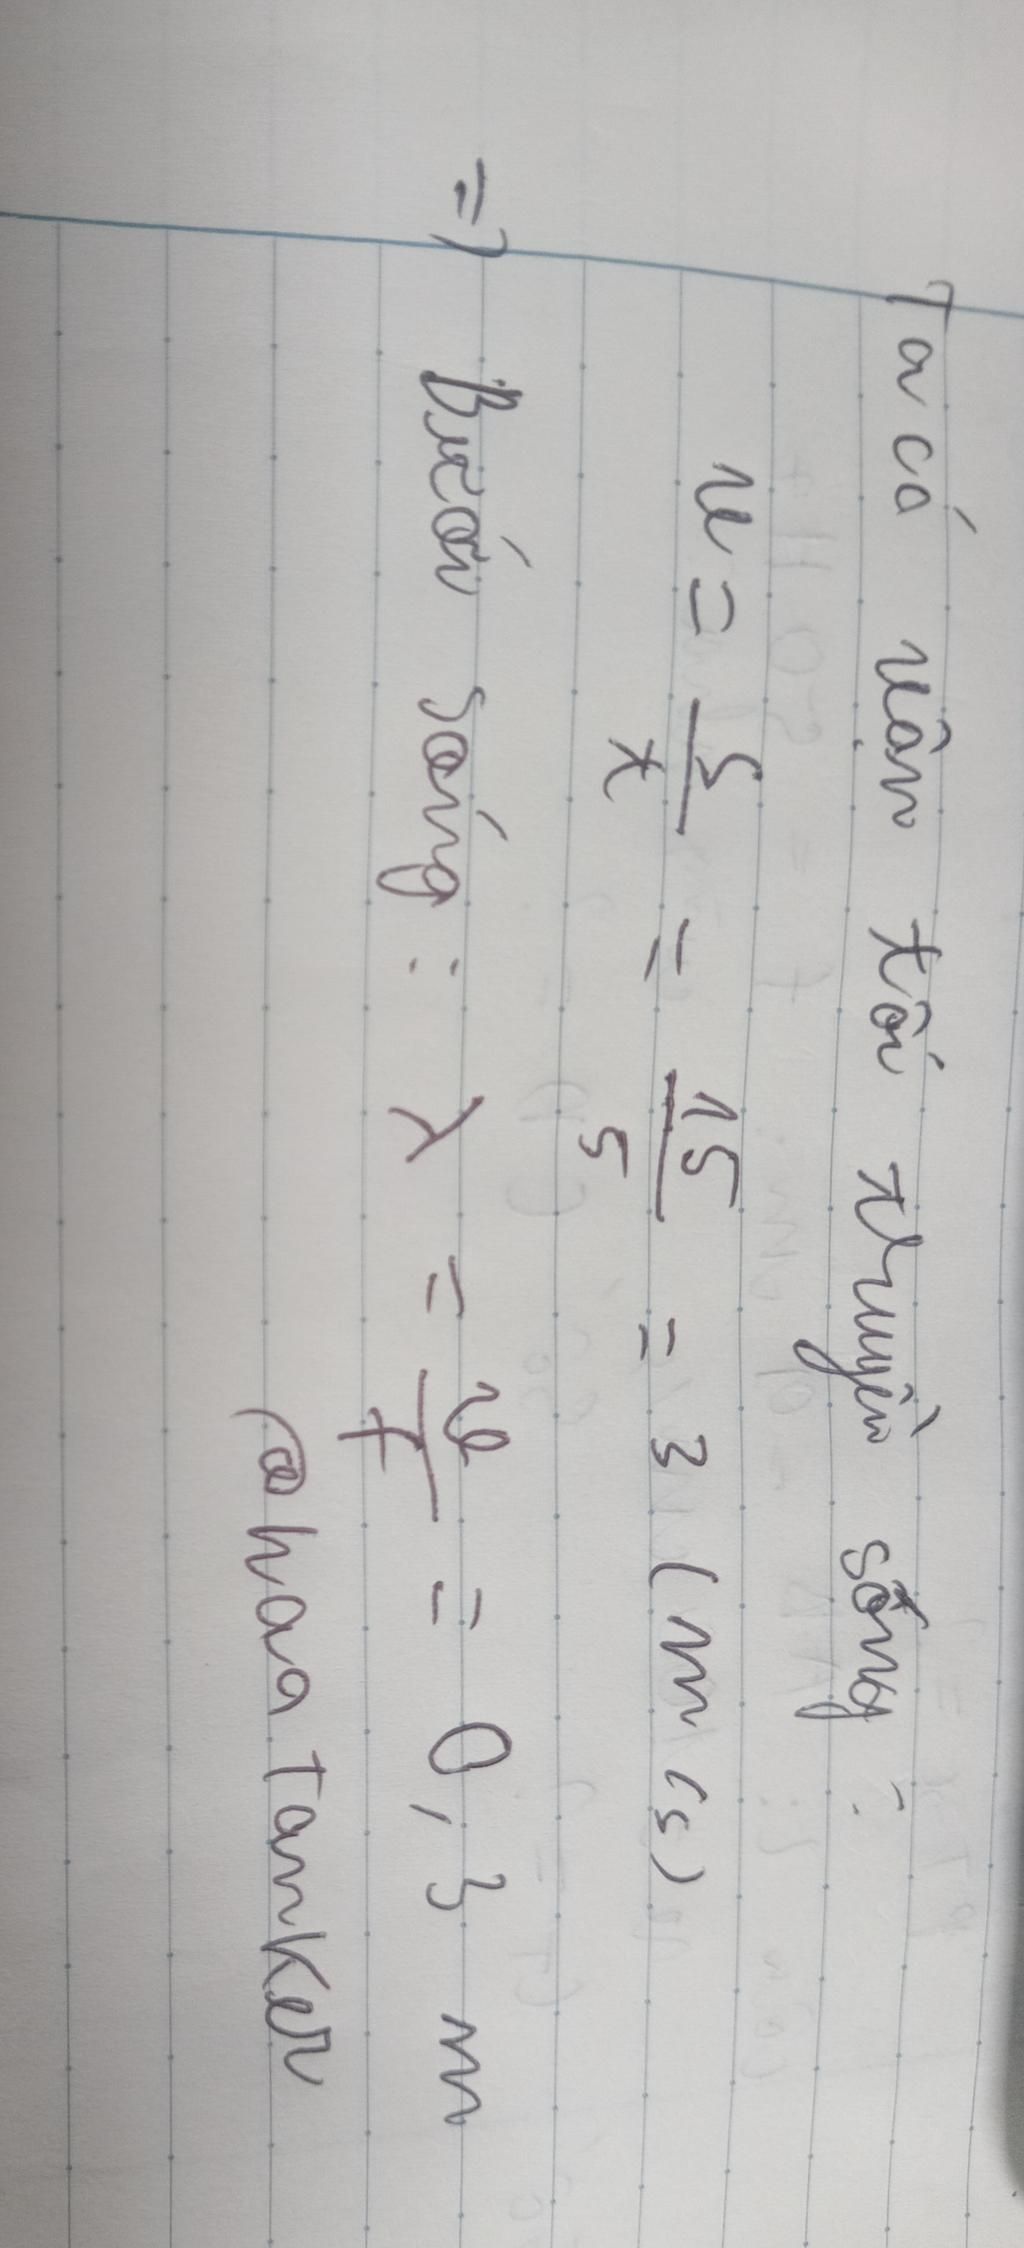 Ta có vân tốc truyền sống:
v = s/t = 15/5 = 3 (m/s)
=) Bước sóng: λ = v/f = 0,3 m
@haatanker